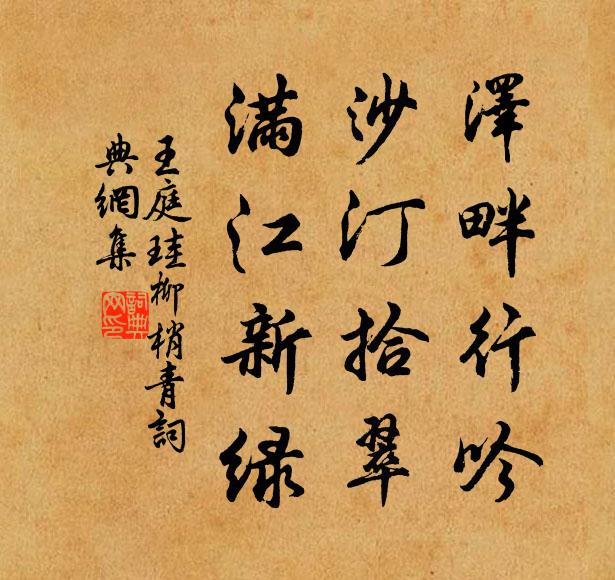 澤畔行吟
沙汀拾翠
滿江新緑
王庭珪柳梢青詞
典網集
詞典网印